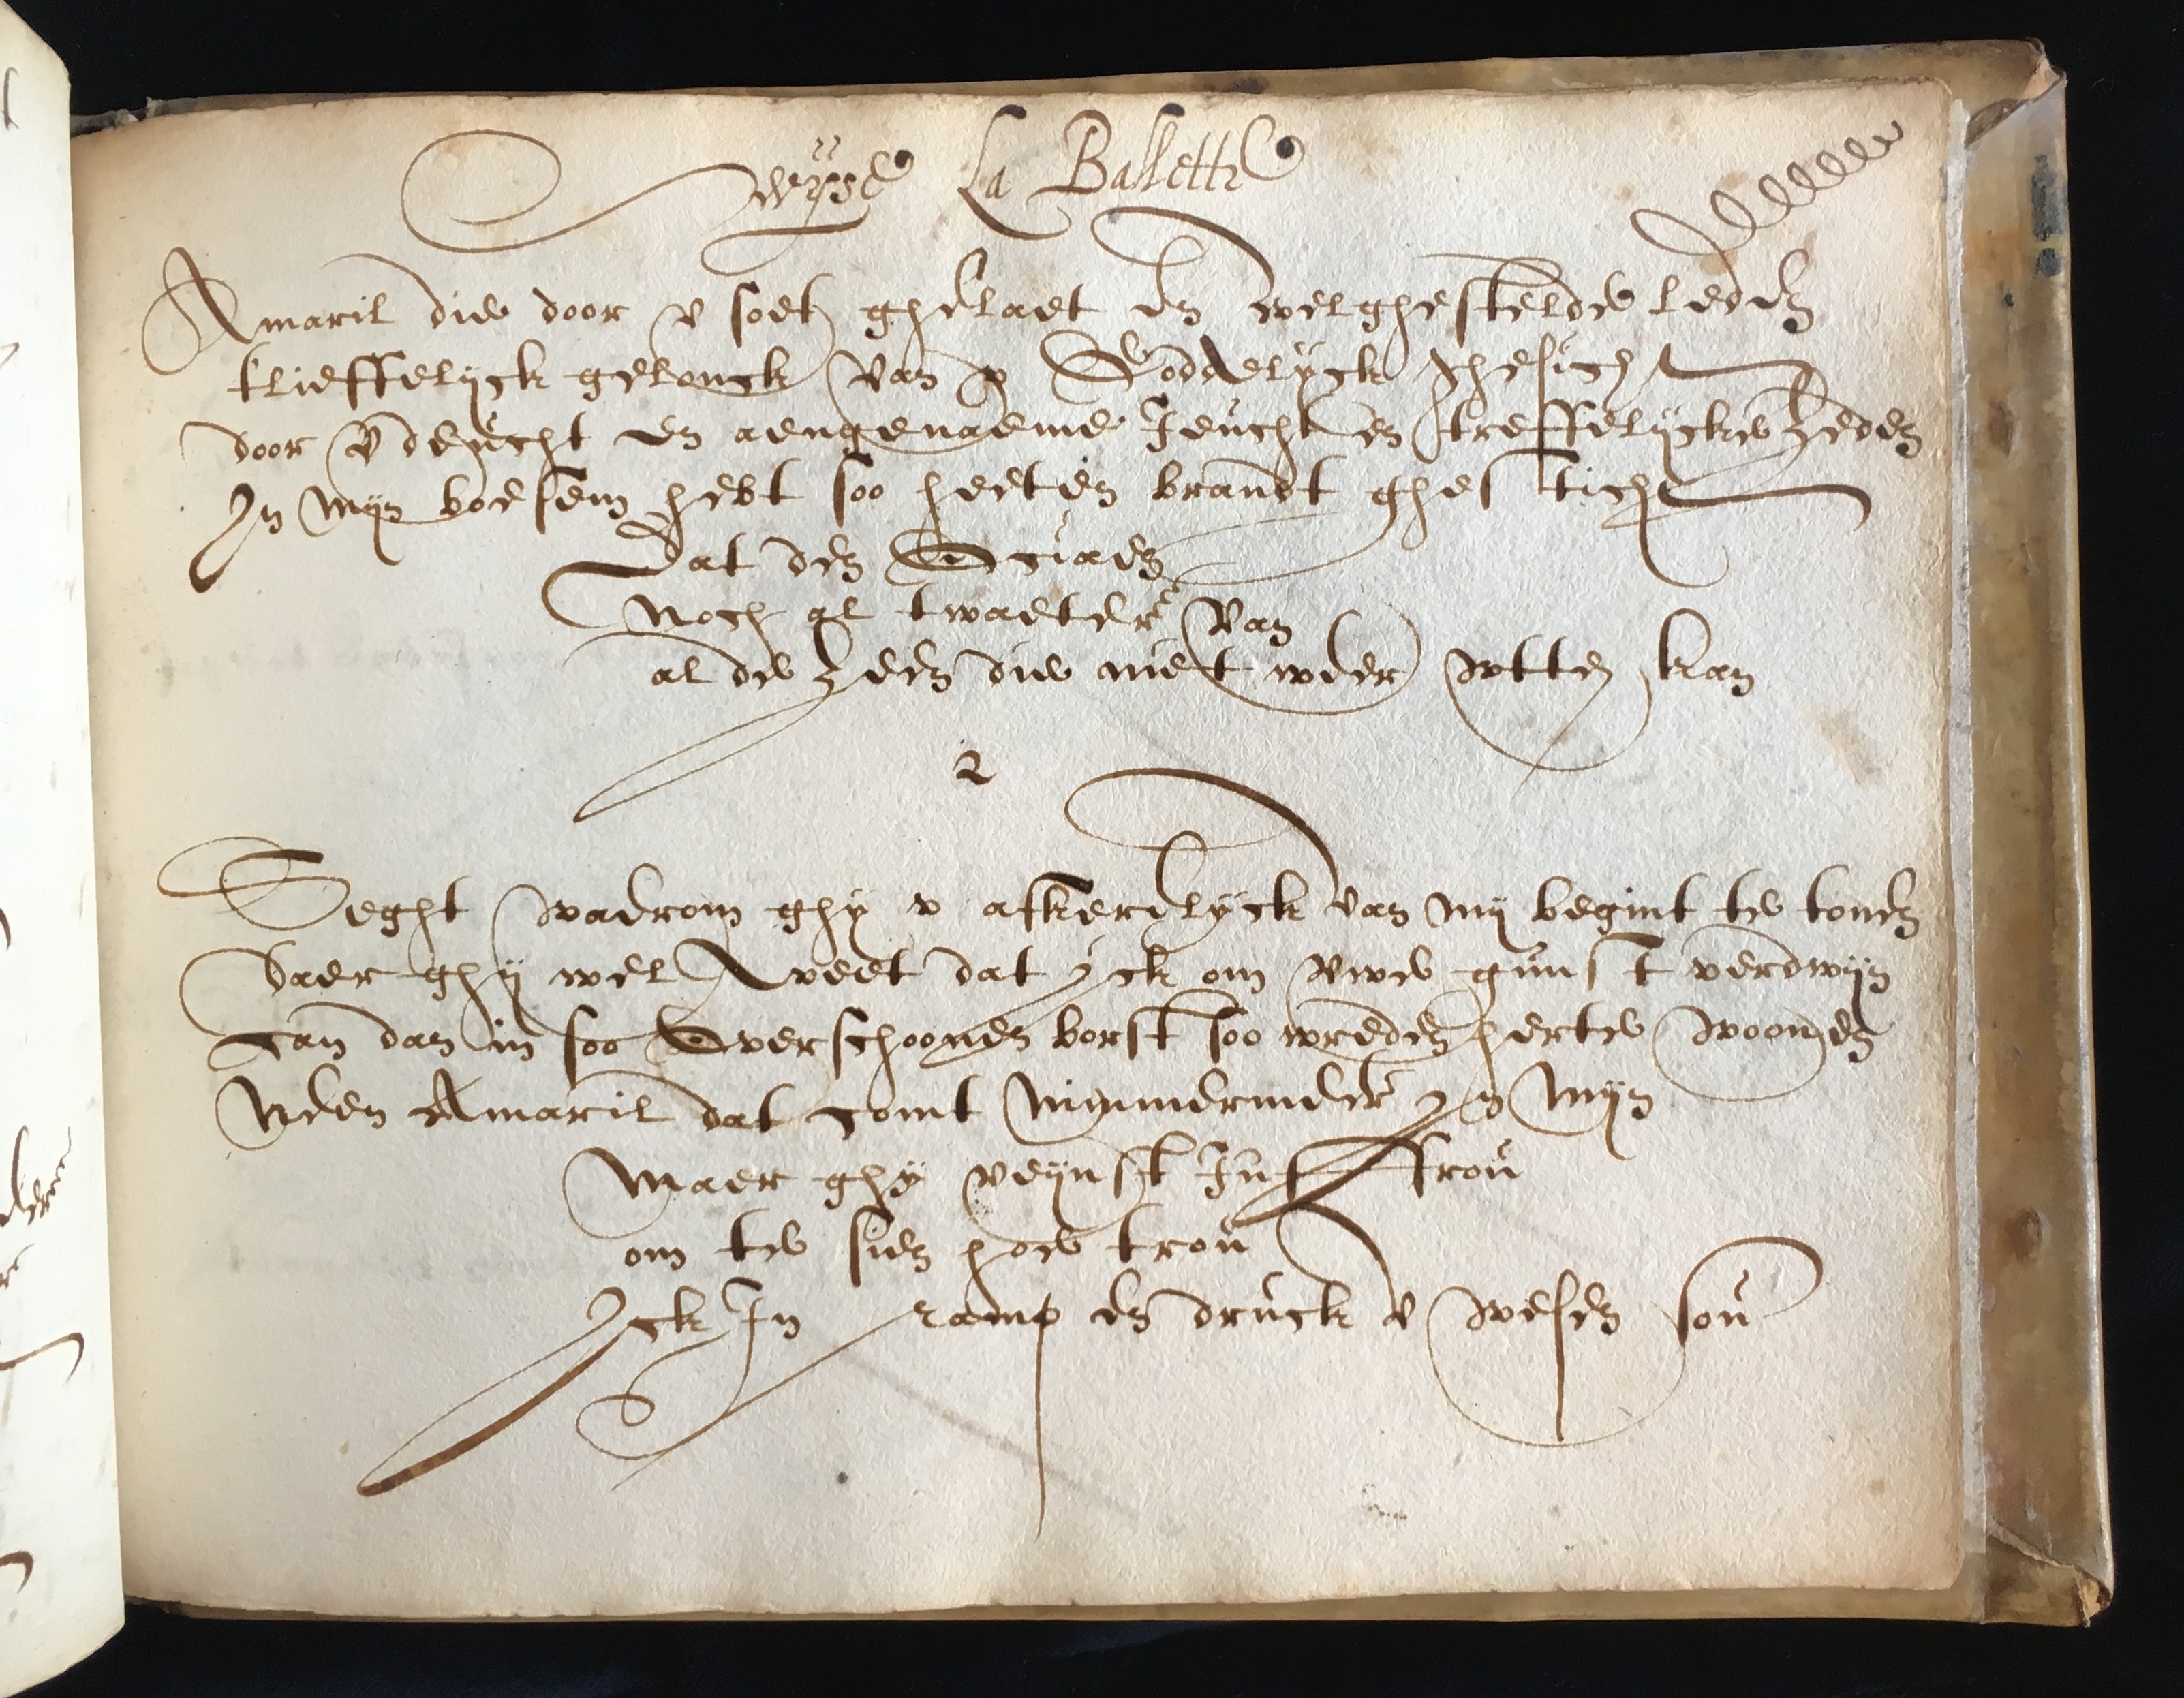 wÿse La Ballette
Amaril die door v soet ghelaet en welghestelde leden
tlieffelijck gelonck van v Goddelÿck ghesicht
door v deucht en aengenaeme Jeucht en treffelijcke zeden
In mijn boesem hebt soo heeten brandt ghesticht
Dat den Oceaen
noch al twaeter van
al de zeen die niet weer wtten kan
2
Seght waerom ghÿ v afkerelÿck van mij begint te tonen
Daer ghÿ wel weet dat ÿck om vwe gunst verdwijn
Can dan in soo overschoonen borst soo wreeden herte woonen
Neen Amaril dat comt nimmermeer In mijn
maer ghÿ veÿnst Juffrou
om te sien hoe trou
Ick In ramp en druck v wesen sou